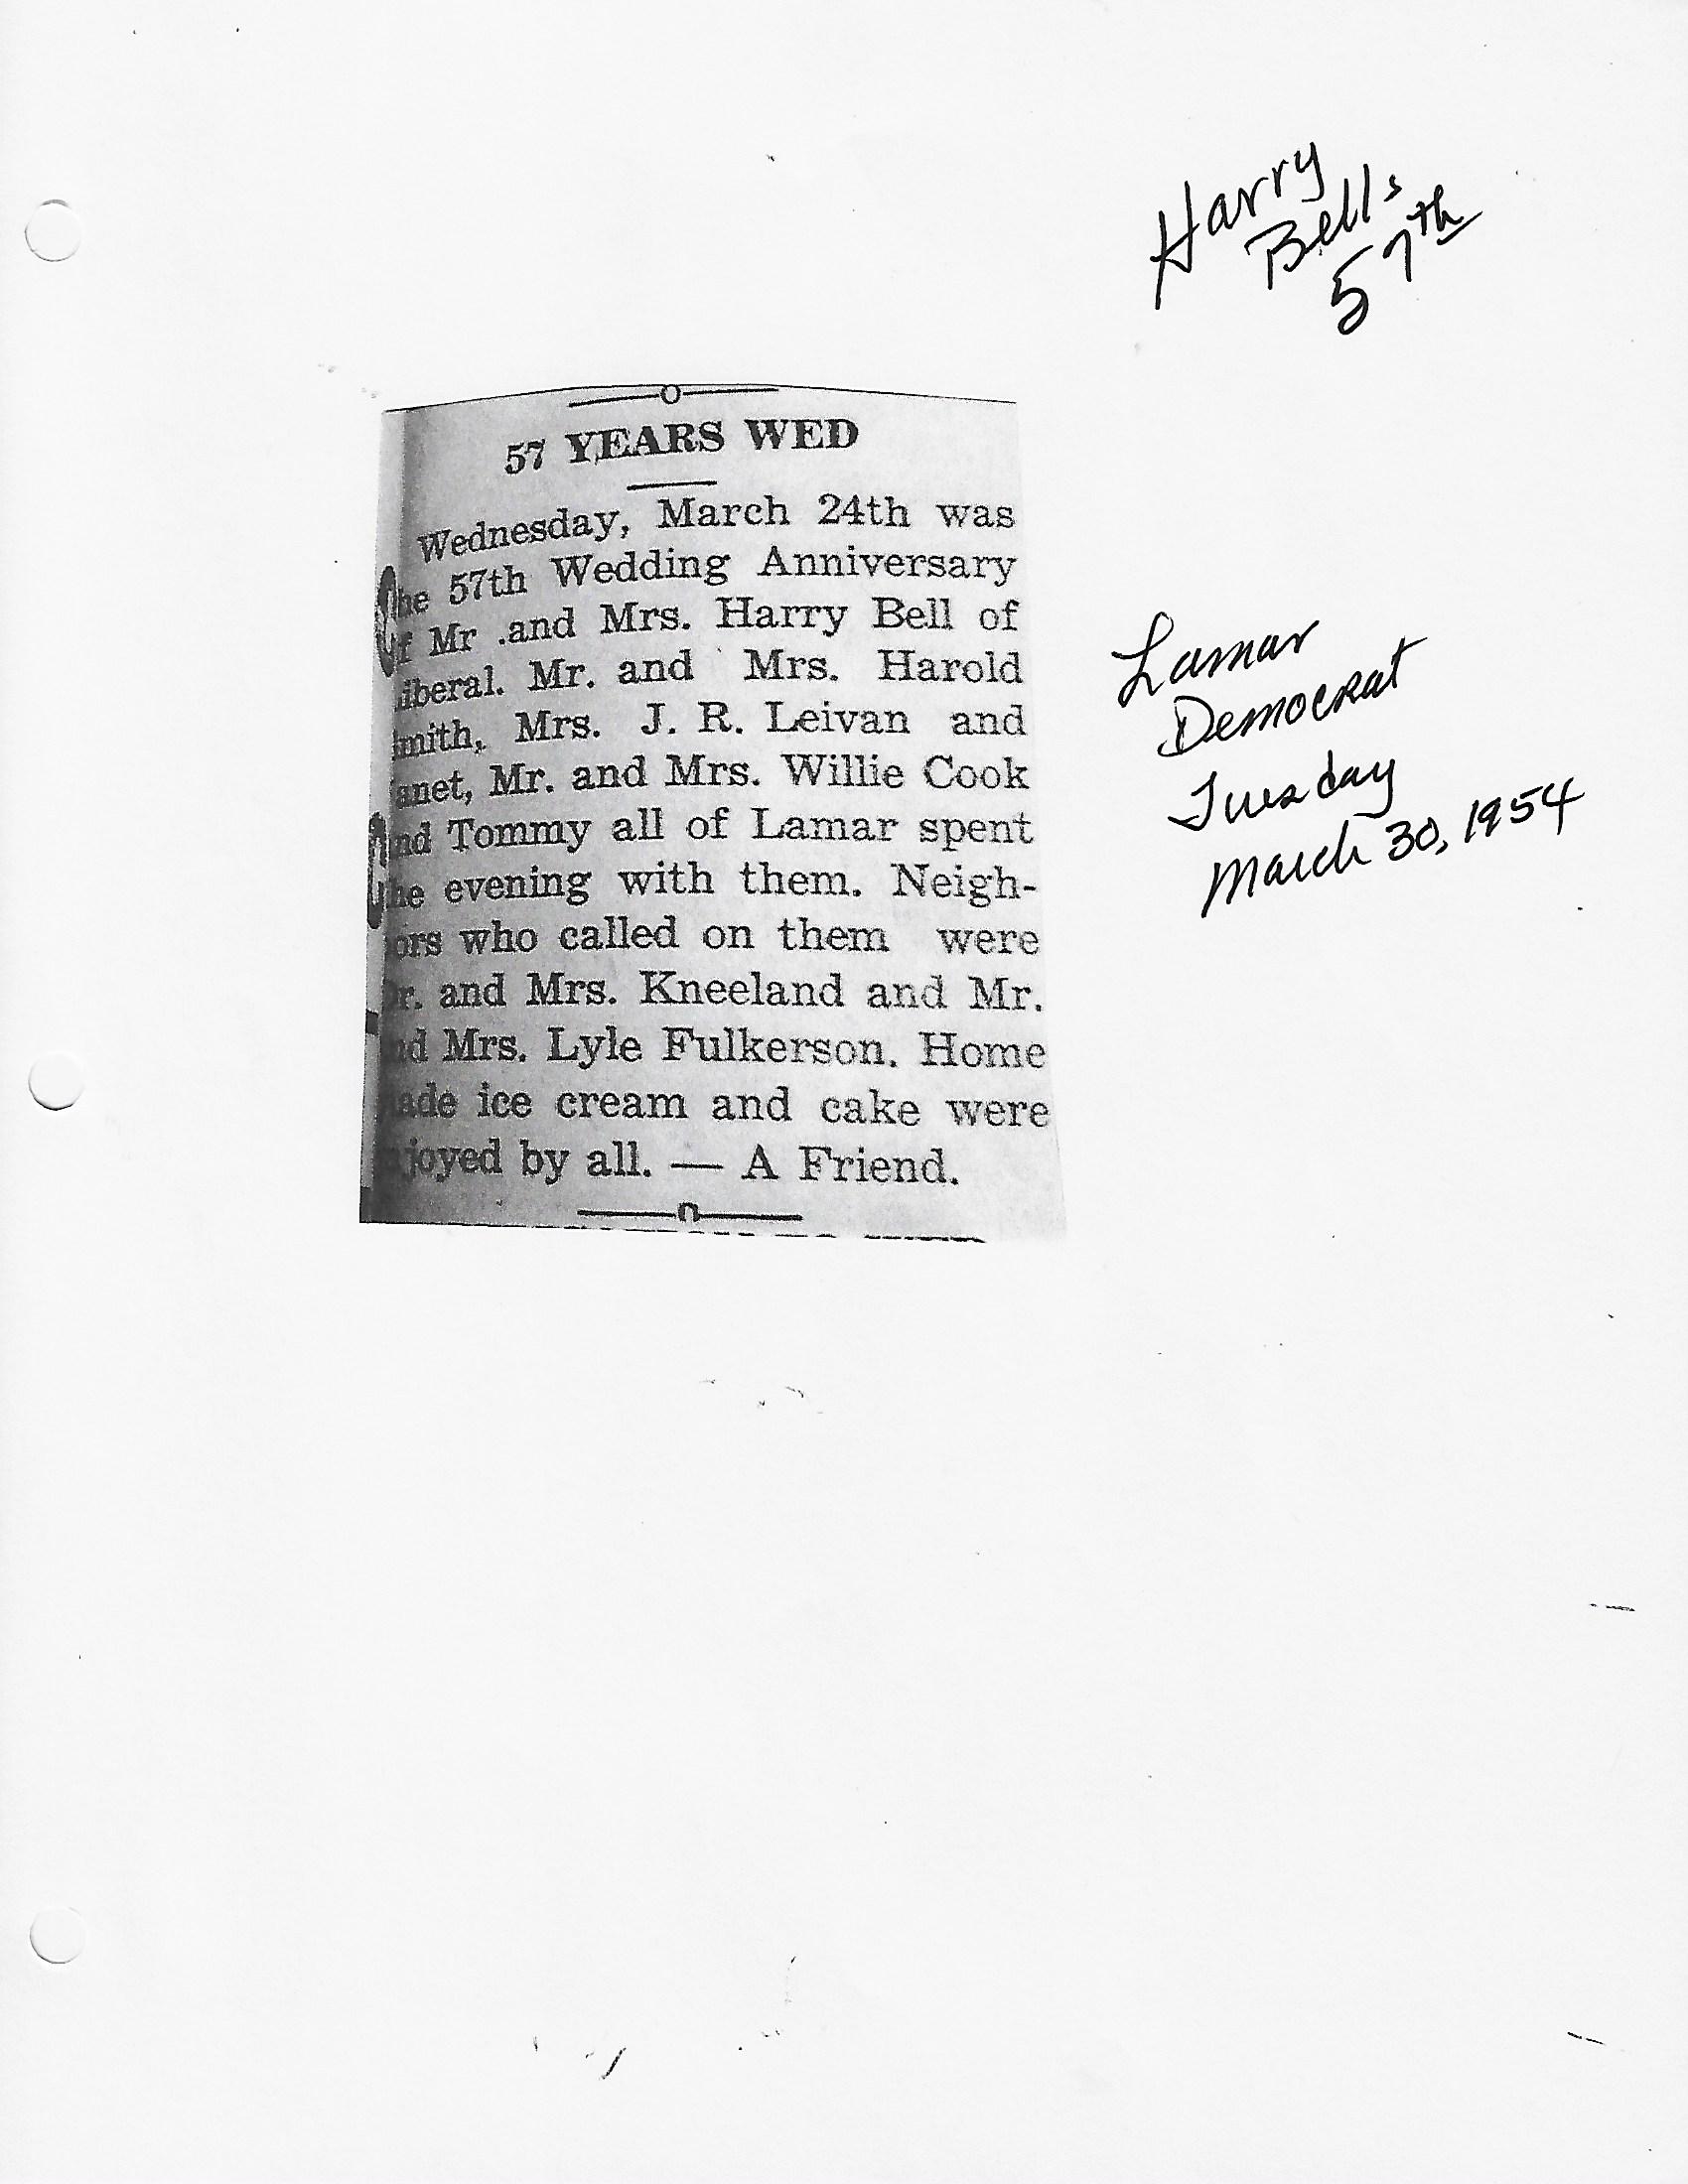 Harry
Bells
57th
57 YEARS WED
Wednesday, March 24th was
he 57th Wedding Anniversary
f Mr .and Mrs. Harry Bell of
iberal. Mr. and Mrs. Harold
mith, Mrs. J. R. Leivan and
anet, Mr. and Mrs. Willie Cook
nd Tommy all of Lamar spent
he evening with them. Neigh-
ors who called on them were
r. and Mrs. Kneeland and Mr.
nd Mrs. Lyle Fulkerson. Home
ade ice cream and cake were
joyed by all. — A Friend.
Lamar
Democrat
Tuesday
March 30, 1954